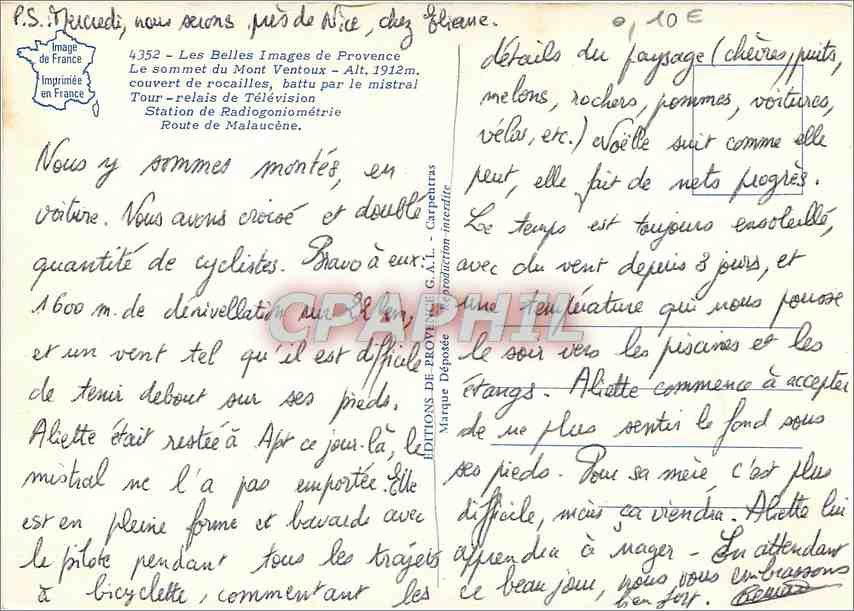 P.S. Mercredi, nous serons près de Nice, chez Eliane.
0,10 €
Image
de France
Imprimée
en France
4352 - Les Belles Images de Provence
Le sommet du Mont Ventoux - Alt. 1912m.
couvert de rocailles, battu par le mistral
Tour - relais de Télévision
Station de Radiogoniométrie
Route de Malaucène.
Nous y sommes montés, en
voiture. Nous avons croisé et doublé
quantité de cyclistes. Bravo à eux:
1600 m. de dénivellation sur 22 km,
et un vent tel qu'il est difficile
de tenir debout sur ses pieds.
Aliette était restée à Apt ce jour-là, le
mistral ne l'a pas emportée. Elle
est en pleine forme et bavarde avec
le pilote pendant tous les trajets
à bicyclette, commentant les
EDITIONS DE PROVENCE G.A.L. - Carpentras
Marque Déposée Reproduction interdite
détails du paysage (chèvres, puits,
melons, rochers, pommes, voitures,
vélos, etc.) Noëlle suit comme elle
peut, elle fait de nets progrès.
Le temps est toujours ensoleillé,
avec du vent depuis 3 jours, et
une température qui nous pousse
le soir vers les piscines et les
étangs. Aliette commence à accepter
de ne plus sentir le fond sous
ses pieds. Pour sa mère, c'est plus
difficile, mais ça viendra. Aliette lui
apprendra à nager - En attendant
ce beau jour, nous vous embrassons
bien fort.
CPAPHIL